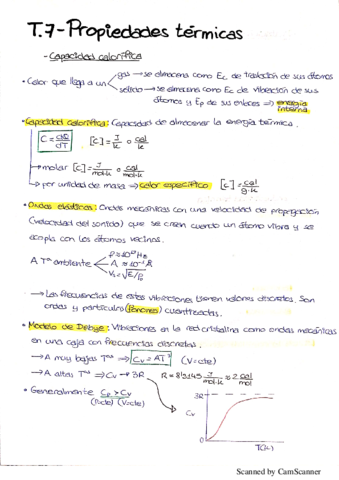 T.7-Propiedades térmicas
- Capacidad calorífica
• Calor que llega a un
gas → se almacena como Ec de traslación de sus átomos
sólido → se almacena como Ec de vibración de sus
átomos y Ep de sus enlaces => energía
interna
• Capacidad calorífica: Capacidad de almacenar la energía térmica.
C = dQ/dT [C] = J/K o cal/K
→ molar [C] = J/mol·K o cal/mol·K
→ por unidad de masa → calor específico: [C] = cal/g·K
• Ondas elásticas: Ondas mecánicas con una velocidad de propagación
(velocidad del sonido) que se crean cuando un átomo vibra y se
acopla con los átomos vecinos.
A Tª ambiente
Vs = √E/ρ
→ Las frecuencias de estas vibraciones tienen valores discretos. Son
ondas y partículas (fonones) cuantizadas.
• Modelo de Debye: Vibraciones en la red cristalina como ondas mecánicas
en una caja con frecuencias discretas.
→ A muy bajas Tªs => Cv = AT³ (V=cte)
→ A altas Tªs => Cv → 3R R = 8'3145 J/mol·K ≈ 2 cal/mol
• Generalmente Cp > Cv
(P=cte) (V=cte)
3R
Cv
0
T(K)
Scanned by CamScanner